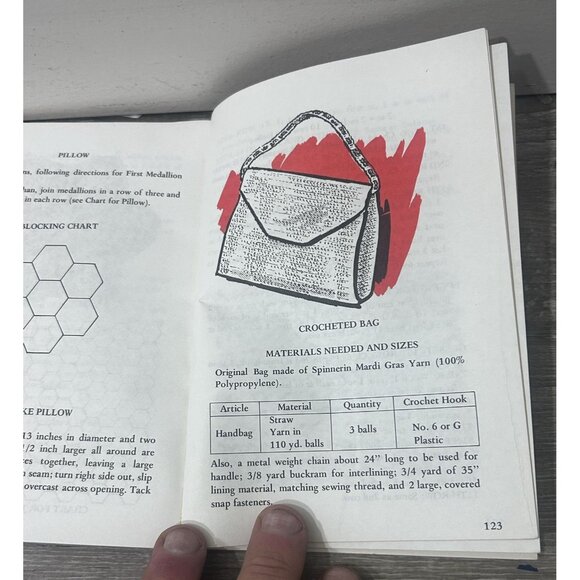 PILLOW
ns, following directions for First Medallion
han, join medallions in a row of three and
in each row (see Chart for Pillow).
LOCKING CHART
KE PILLOW
13 inches in diameter and two
1/2 inch larger all around are
es together, leaving a large
seam; turn right side out, slip
overcast across opening. Tack
CROCHETED BAG
MATERIALS NEEDED AND SIZES
Original Bag made of Spinnerin Mardi Gras Yarn (100%
Polypropylene).
Article Material Quantity Crochet Hook
Handbag Straw Yarn in 110 yd. balls 3 balls No. 6 or G Plastic
Also, a metal weight chain about 24" long to be used for
handle; 3/8 yard buckram for interlining; 3/4 yard of 35"
lining material, matching sewing thread, and 2 large, covered
snap fasteners.
123